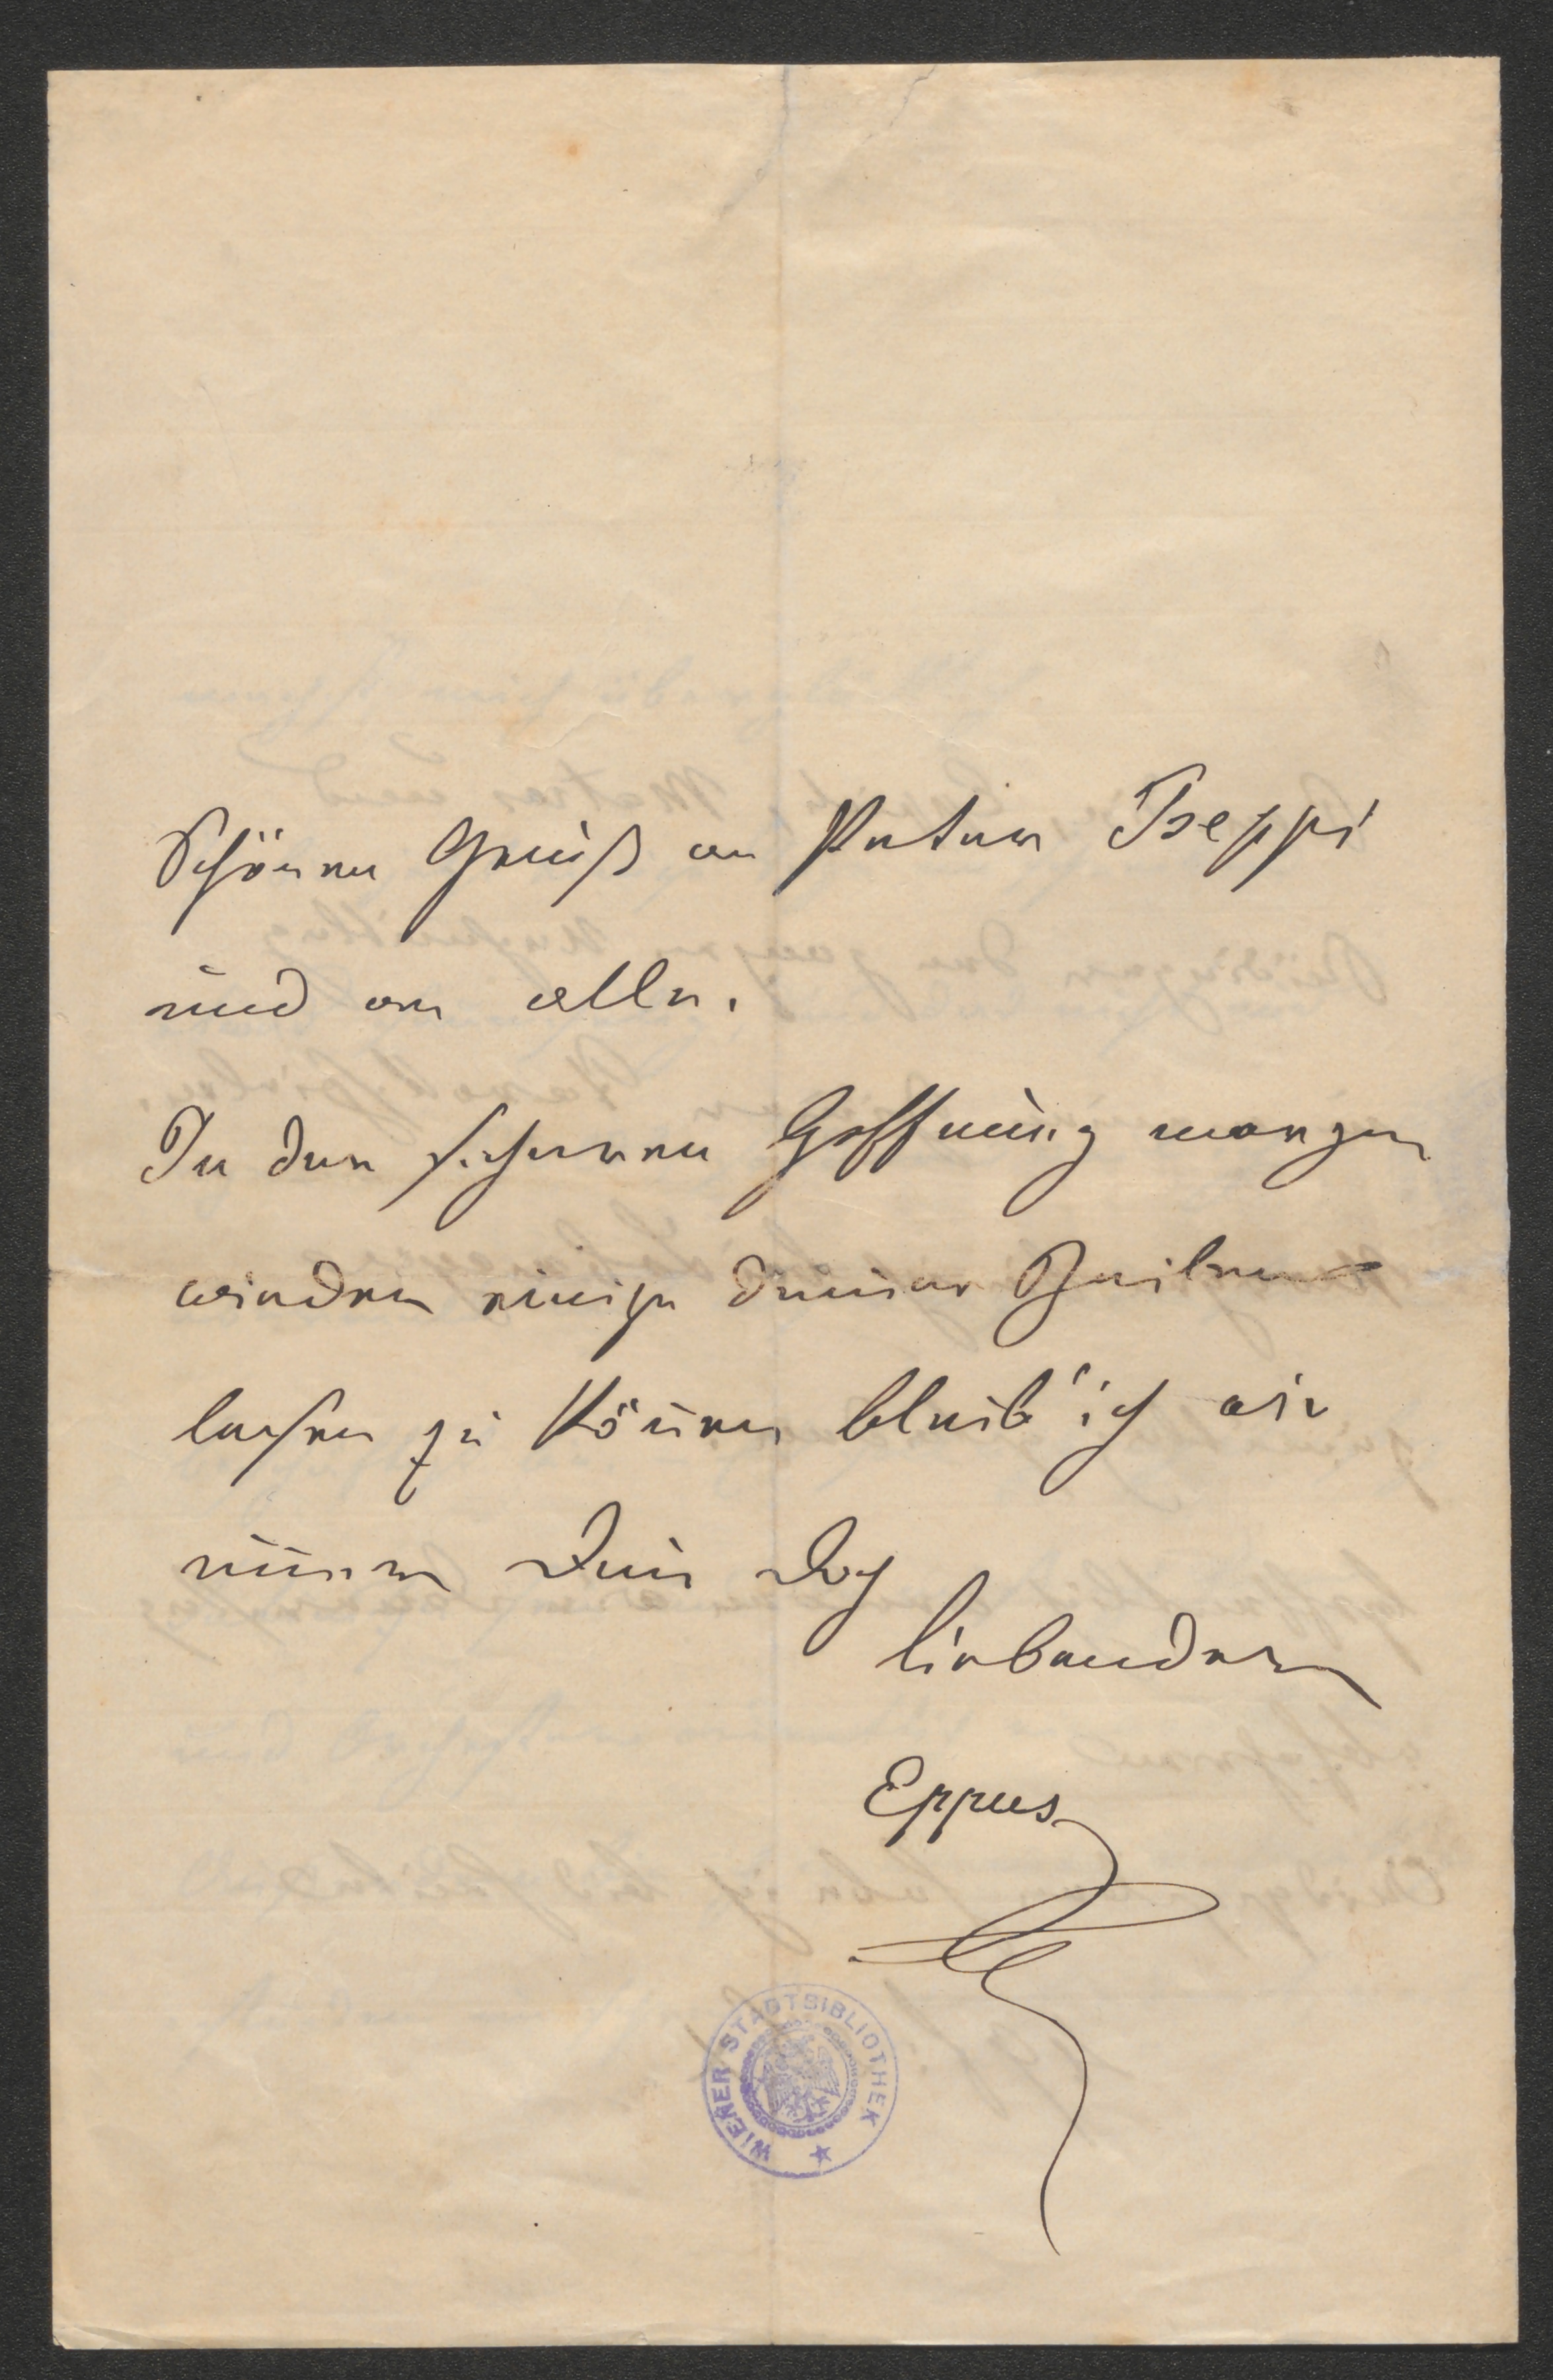 Schönen Gruß an Peter Tseppi
und an alle.
In der sicheren Hoffnung morgen
wieder einige deiner Zeilen
lesen zu können bleib' ich wie
immer Dein Dich
liebender
Eppus
WIENER STADTBIBLIOTHEK